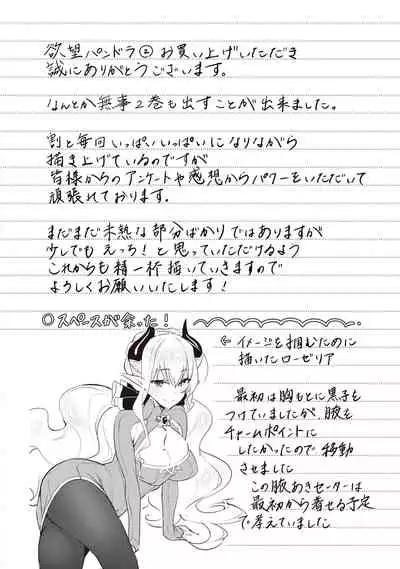 欲望パンドラ②お買い上げいただき
誠にありがとうございます。
なんとか無事2巻も出すことが出来ました。
割と毎回いっぱいいっぱいになりながら
描き上げているのですが
皆様からのアンケートや感想からパワーをいただいて
頑張れております。
まだまだ未熟な部分ばかりではありますが
少しでもえっち!と思っていただけるよう
これからも精一杯描いていきますので
よろしくお願いいたします!
○スペースが余った!
← イメージを掴むために
描いたローゼリア
最初は胸もとに黒子を
つけていましたが、腋を
チャームポイントに
したかったので移動
させました
この腋あきセーターは
最初から着せる予定
で考えていました